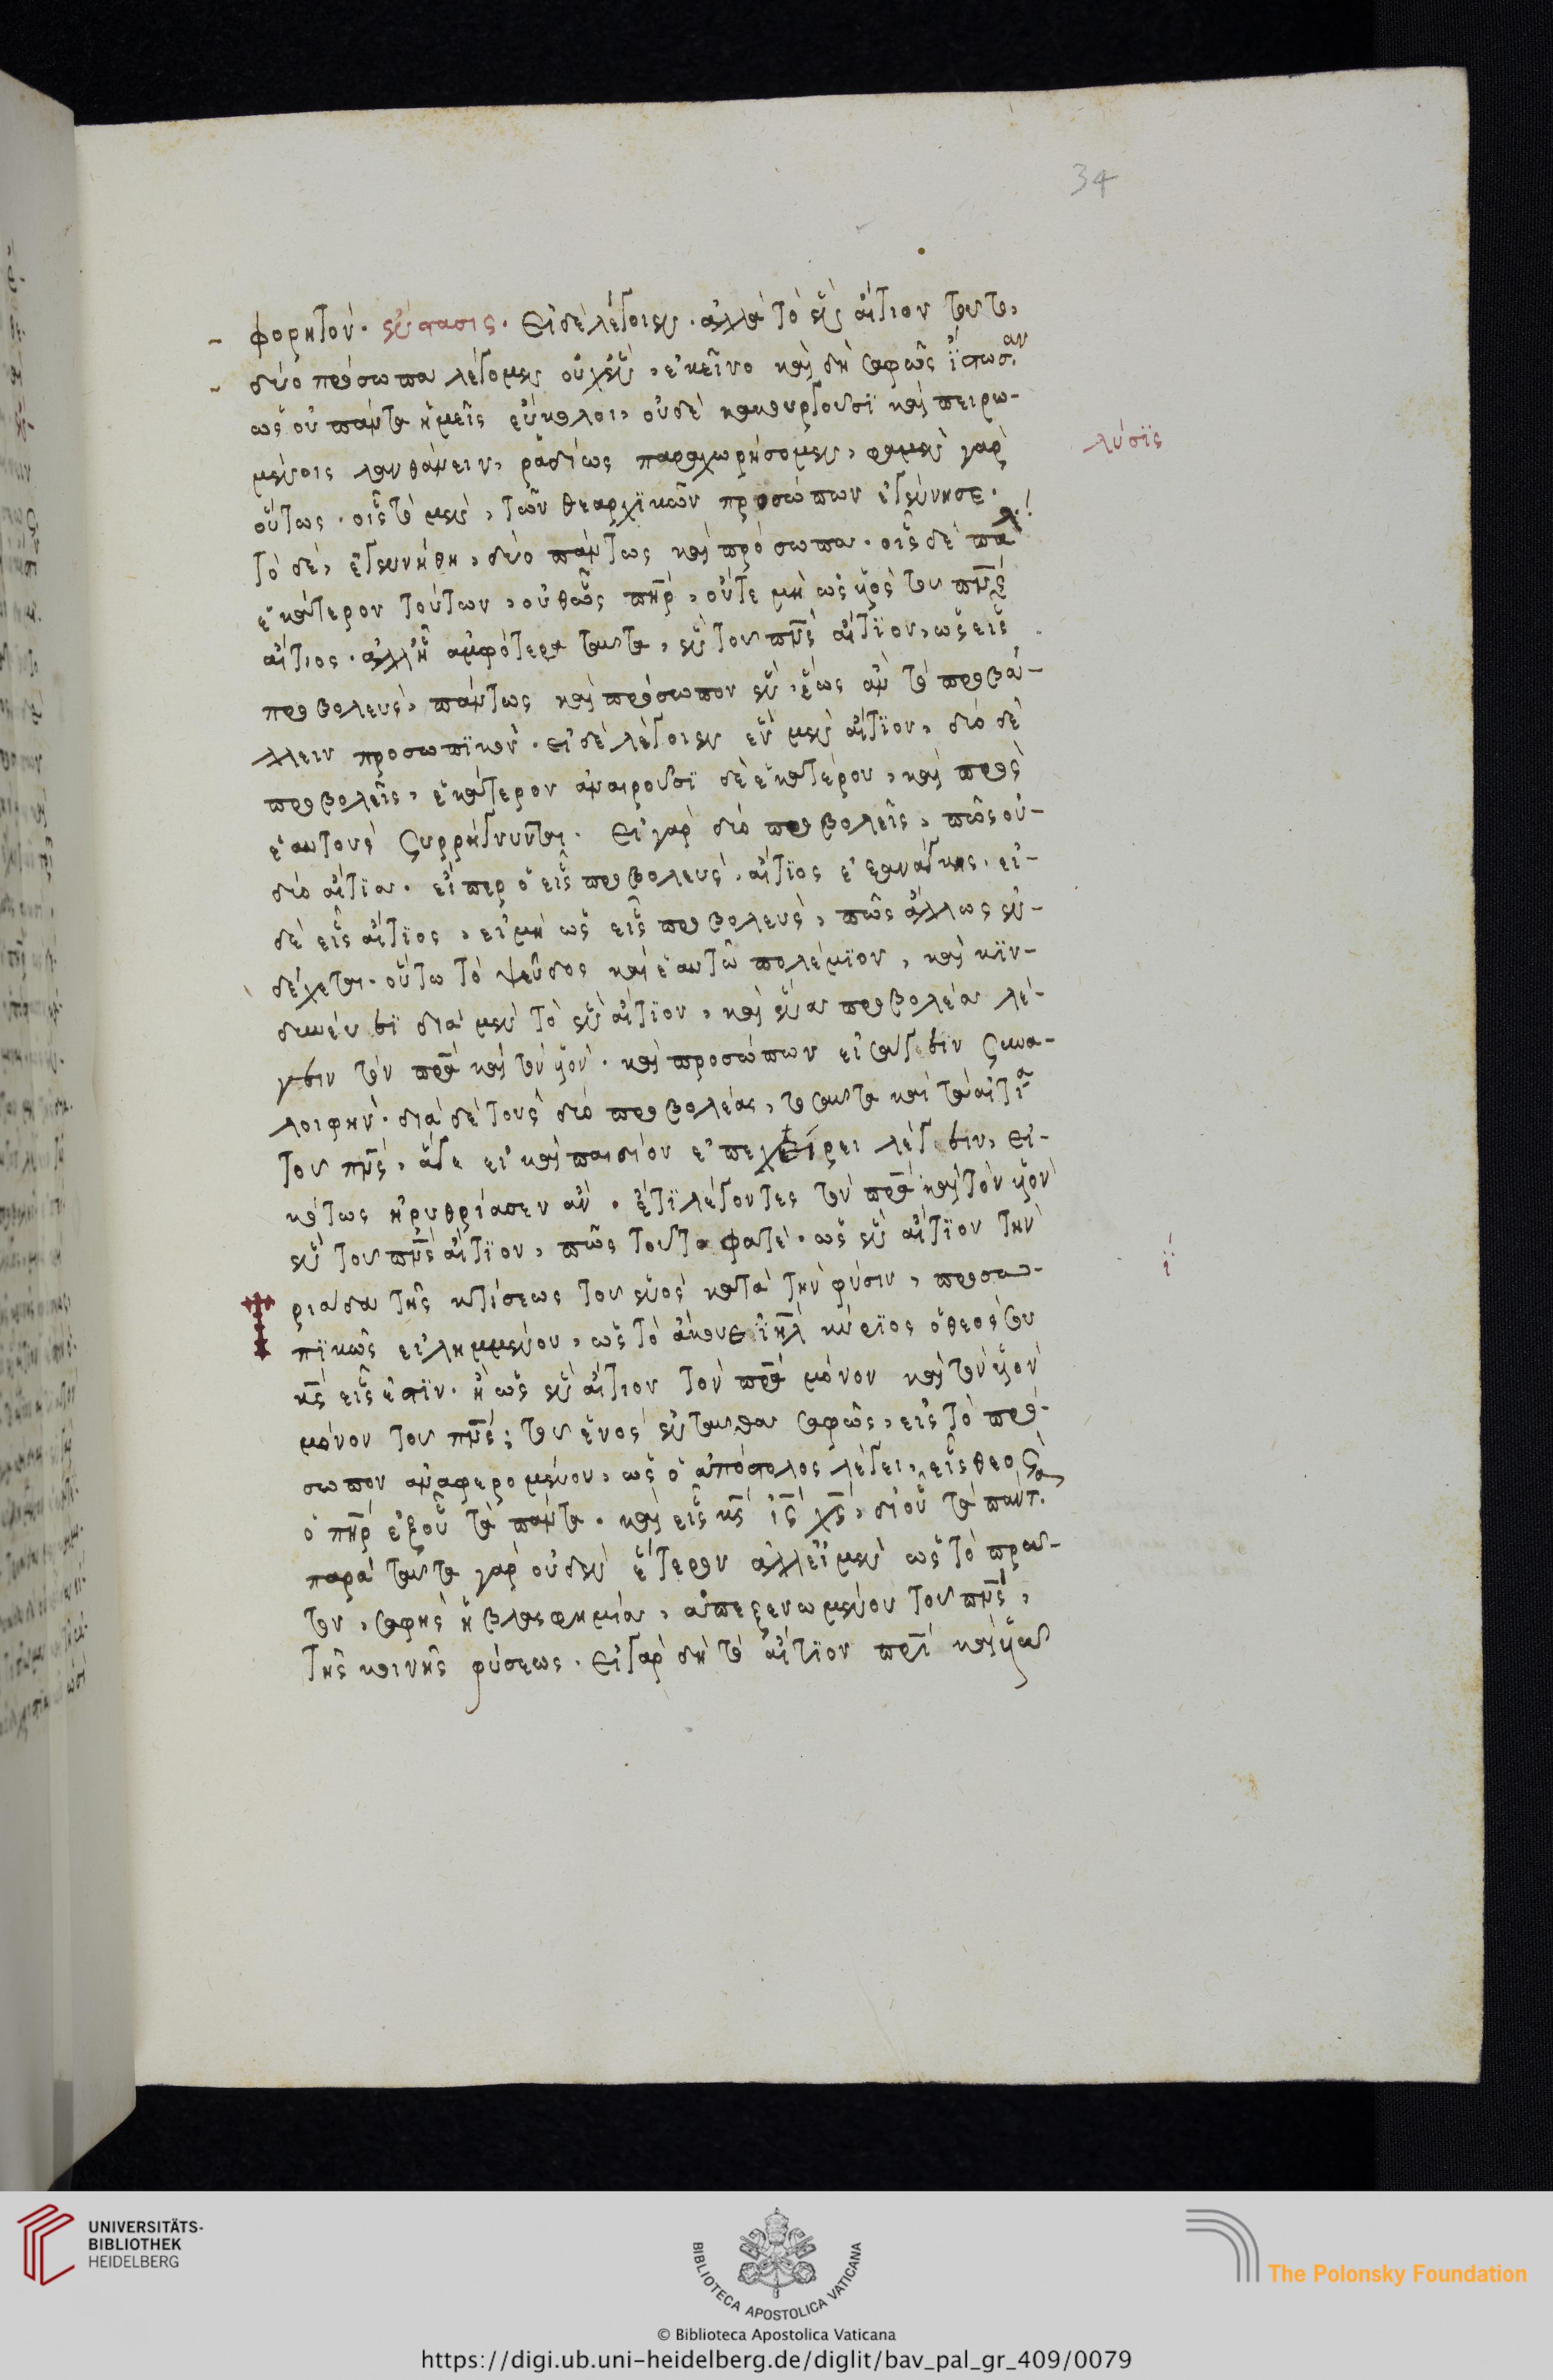 34
φορητόν. ἔνστασις. Εἰ δὲ λέγοιεν. ἀλλὰ τὸ ἓν αἴτιον τοῦτο,
δύο πρόσωπα λέγομεν οὐχ ἕν, ἐκεῖνο καὶ δὴ σαφῶς ἴστωσαν
ὡς οὐ πάντα ἡμεῖς εὔκολοι, οὐδὲ κακουργοῦσϊ καὶ πειρω-
μένοις λανθάνειν, ῥαδίως παραχωρήσομεν, φαμὲν γὰρ
λύσϊς
οὕτως. οἷς τὸ μὲν, τῶν θεαρχϊκῶν προσώπων ἐγέννησε.
τὸ δὲ, ἐγεννήθη, δύο πάντως καὶ πρόσωπα. οἷς δὲ πάλ
ἑκάτερον τούτων, οὐθ ὡς πηρ, οὔτε μὴ ὡς υἱὸς τοῦ πνς
αἴτιος. ἀλλ ἢ ἀμφότερα ταῦτα, ἓν τοῦ πνς αἴτϊον, ὡς εἷς
προβολεὺς, πάντως καὶ πρόσωπον ἓν, ἕως ἂν τὸ προβά-
λλειν προσωπϊκὸν. εἰ δὲ λέγοιεν ἓν μὲν αἴτϊον, δύο δὲ
προβολεῖς, ἑκάτερον ἀναιροῦσϊ δὲ ἑκατέρου, καὶ πρὸς
ἑαυτοὺς συρρήγνυνται. Εἰ γὰρ δύο προβολεῖς, πῶς οὐ-
δύο αἴτϊα. εἴπερ ὁ εἷς προβολεὺς, αἴτϊος ἐξανάγκης. εἰ-
δὲ εἷς αἴτϊος, εἰ μὴ ὡς εἷς προβολεὺς, πῶς ἄλλως ἐν-
δέχεται. οὕτω τὸ ψεῦδος καὶ ἑαυτῷ πολέμϊον, καὶ κϊν-
δυνεύειϊ διὰ μὲν τὸ ἓν αἴτϊον, καὶ ἕνα προβολέα λέ-
γειν τὸν πρα καὶ τὸν υἱὸν. καὶ προσώπων εἰσάγειν συνα-
λοιφὴν. διὰ δὲ τοὺς δύο προβολέας, τοσαῦτα καὶ τὰ αἴτϊα
τοῦ πνς, ἅγε εἰ καὶ παιδίον ἐπεχείρει λέγειν, εἰ-
κότως ἠρυθρίασεν ἂν. ἔτϊ λέγοντες τὸν πρα καὶ τὸν υἱὸν
ἓν τοῦ πνς αἴτϊον, πῶς τοῦτο φατὲ. ὡς ἓν αἴτϊον τὴν
ί
ριάδα τῆς κτίσεως τοῦ ἑνὸς κατὰ τὴν φύσιν, προσω-
πϊκῶς εἰλημμένου, ὡς τὸ ἄκουε ϊηλ κύρϊος ὁ θεός σου
κς εἷς ἐστϊν. ἢ ὡς ἓν αἴτιον τὸν πρα μόνον καὶ τὸν υἱὸν
μόνον τοῦ πνς; τοῦ ἑνὸς ἐνταῦθα σαφῶς, εἰς τὸ πρό-
σωπον ἀναφερομένου, ὡς ὁ ἀπόστολος λέγει, εἷς θεὸς
ὁ πηρ ἐξ οὗ τὰ πάντα. καὶ εἷς κς ις χς, δι οὗ τὰ πάντα.
παρὰ ταῦτα γὰρ οὐδὲν ἕτερον ἀλλ εἰ μὲν ὡς τὸ πρω-
τον, σαφὴς ἡ βλασφημία, ἀπεξενωμένου τοῦ πνς,
τῆς κοινῆς φύσεως. Εἰ γὰρ δὴ τὸ αἴτϊον πρὶ καὶ υἱῷ
UNIVERSITÄTS-
BIBLIOTHEK
HEIDELBERG
BIBLIOTECA APOSTOLICA VATICANA
The Polonsky Foundation
© Biblioteca Apostolica Vaticana
https://digi.ub.uni-heidelberg.de/diglit/bav_pal_gr_409/0079